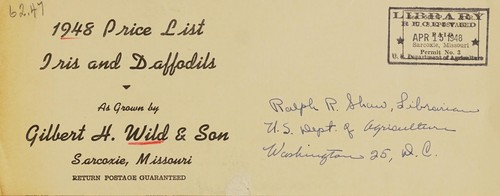 62.47
1948 Price List
Iris and Daffodils
As Grown by
Gilbert H. Wild & Son
Sarcoxie, Missouri
RETURN POSTAGE GUARANTEED
LIBRARY
RECEIVED
PAID
APR 15 1948
Sarcoxie, Missouri
Permit No. 2
U. S. Department of Agriculture
Ralph R. Shaw, Librarian
U.S. Dept. of Agriculture
Washington 25, D.C.